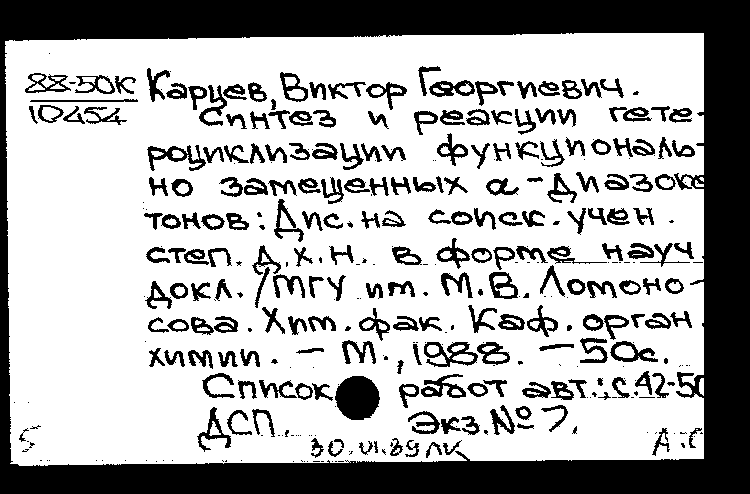 88-50К Карцев, Виктор Георгиевич.
10454 Синтез и реакции гете-
роциклизации функциональ-
но замещенных α-диазоке
тонов: Дис. на соиск. учен.
степ. д.х.н. в форме науч.
докл. / МГУ им. М.В. Ломоно-
сова. Хим. фак. Каф. орган.
химии. — М., 1988. — 50с.
Список работ авт.: с.42-50
ДСП. Экз. № 7.
5 30.VI.89 ЛК А.С